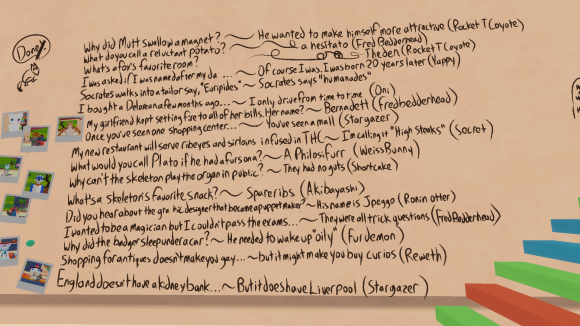 Done!
Why did Mutt swallow a magnet? ~ He wanted to make himself more attractive (Rocket T Coyote)
What do you call a reluctant potato? ~ a hesitato (Fred Bedderhead)
What's a fox's favorite room? ~ The den (Rocket T Coyote)
I was asked if I was named after my da ... ~ Of course I was. I was born 20 years later (Yappy)
Socrates walks into a tailor say, "Euripides" ~ Socrates says "humanodes"
I bought a Delorean a few months ago... ~ I only drive from time to time (Oni)
My girlfriend kept setting fire to all of her bills. Her name? ~ Bernadett (fredbedderhead)
Once you've seen one shopping center... ~ You've seen a mall (Stargazer)
My new restaurant will serve ribeyes and sirloins infused in THC ~ I'm calling it "High Steaks" (Socrot)
What would you call Plato if he had a fursona? ~ A Philosifurr (WeissBunny)
Why can't the skeleton play the organ in public? ~ They had no guts (Shortcake)
What's a skeleton's favorite snack? ~ Spareribs (Akibayashi)
Did you hear about the graphic designer that became a puppet maker? ~ His name is Jpeggo (Ronin otter)
I wanted to be a magician but I couldn't pass the exams... ~ They were all trick questions (Fred Bedderhead)
Why did the badger sleep under a car? ~ He needed to wake up "oily" (furdemon)
Shopping for antiques doesn't make you gay... ~ but it might make you buy curios (Reweth)
England doesn't have a kidney bank... ~ But it does have Liverpool (Stargazer)